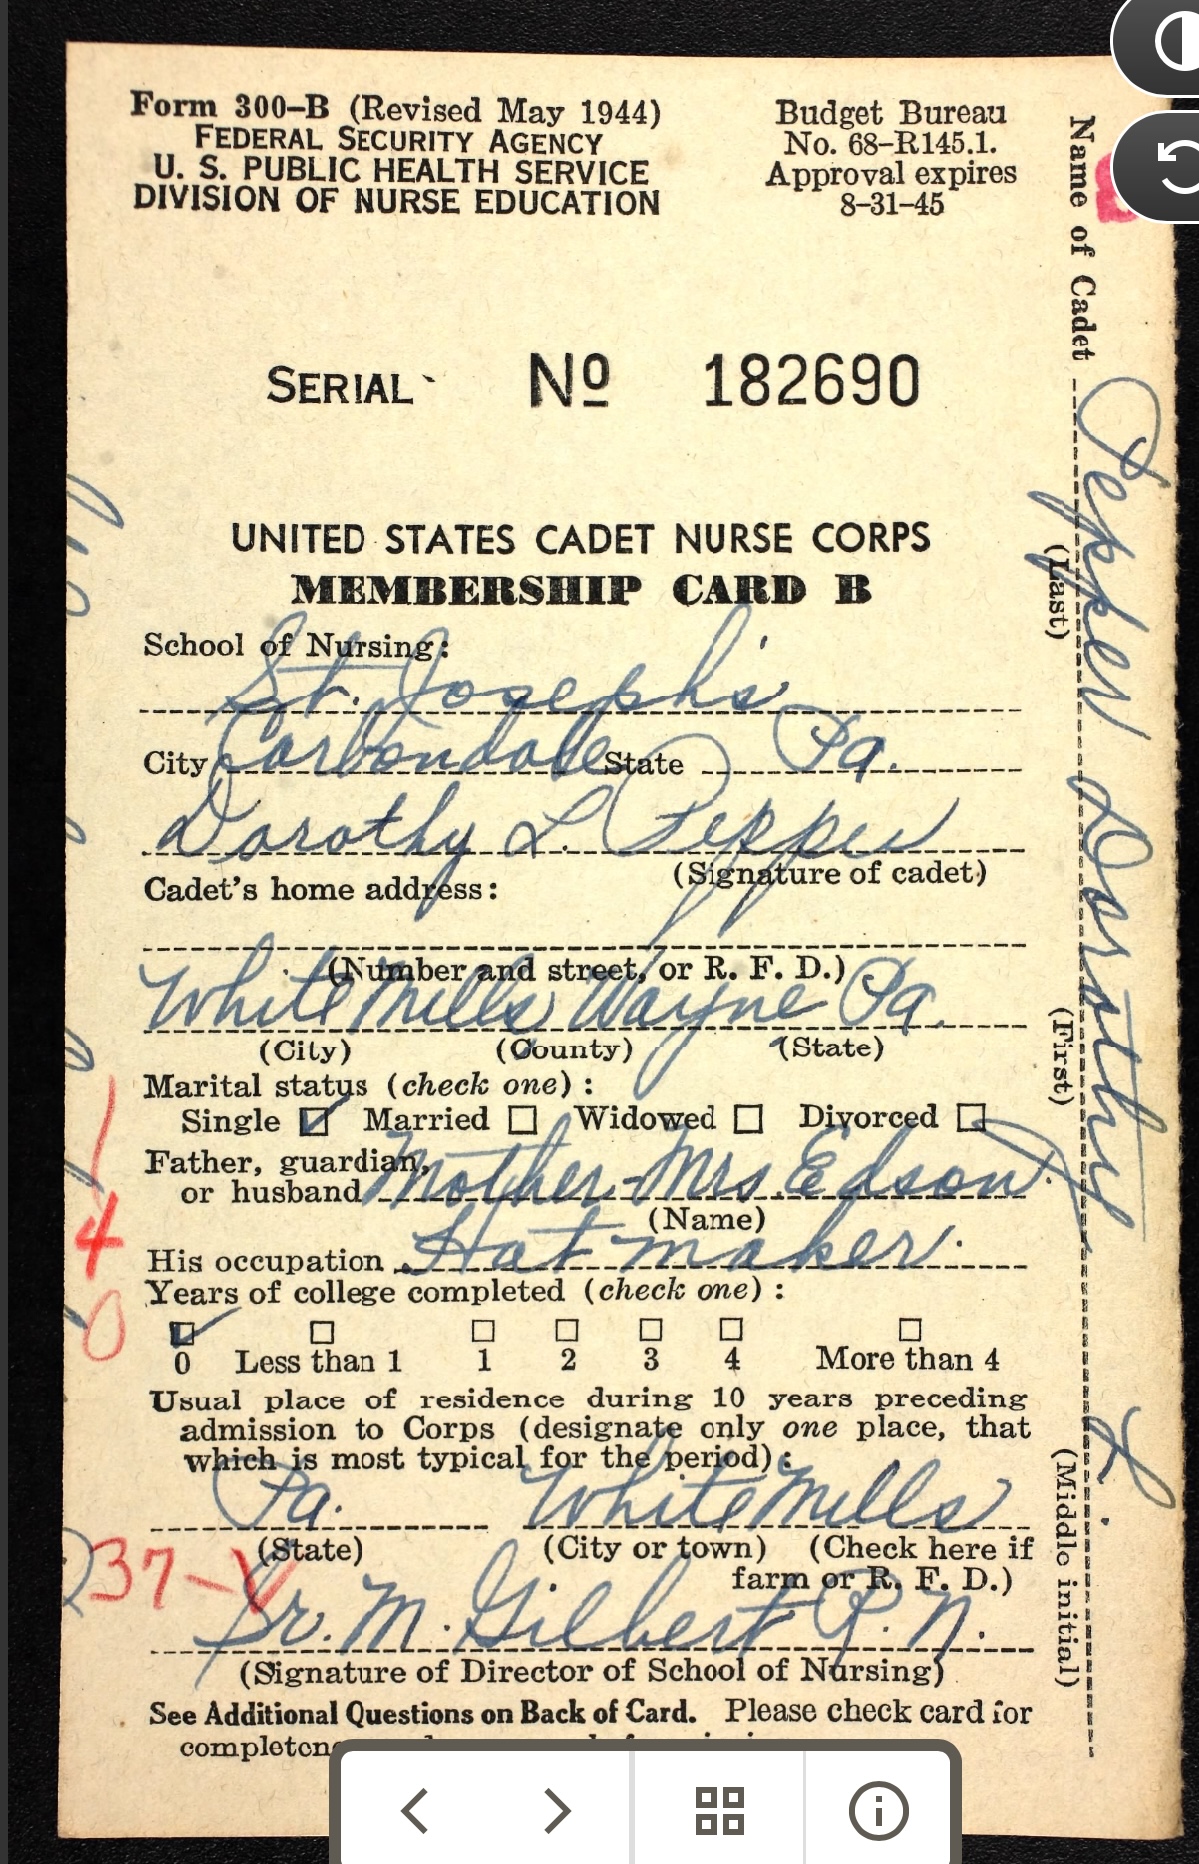 Form 300-B (Revised May 1944)
FEDERAL SECURITY AGENCY
U. S. PUBLIC HEALTH SERVICE
DIVISION OF NURSE EDUCATION
Budget Bureau
No. 68-R145.1.
Approval expires
8-31-45
SERIAL No 182690
UNITED STATES CADET NURSE CORPS
MEMBERSHIP CARD B
School of Nursing:
St. Joseph's
City Carbondale State Pa.
Dorothy L. Pepper
(Signature of cadet)
Cadet's home address:
(Number and street, or R. F. D.)
White Mills Wayne Pa.
(City) (County) (State)
Marital status (check one):
Single Married Widowed Divorced
Father, guardian,
or husband Mother-Mrs. Edson
(Name)
His occupation Hat maker.
Years of college completed (check one):
0 Less than 1 1 2 3 4 More than 4
Usual place of residence during 10 years preceding
admission to Corps (designate only one place, that
which is most typical for the period):
Pa. White Mills
(State) (City or town) (Check here if
farm or R. F. D.)
Sr. M. Gilbert R.N.
(Signature of Director of School of Nursing)
See Additional Questions on Back of Card. Please check card for
Name of Cadet Pepper Dorothy L.
(Last) (First) (Middle initial)
1
4
0
37-V